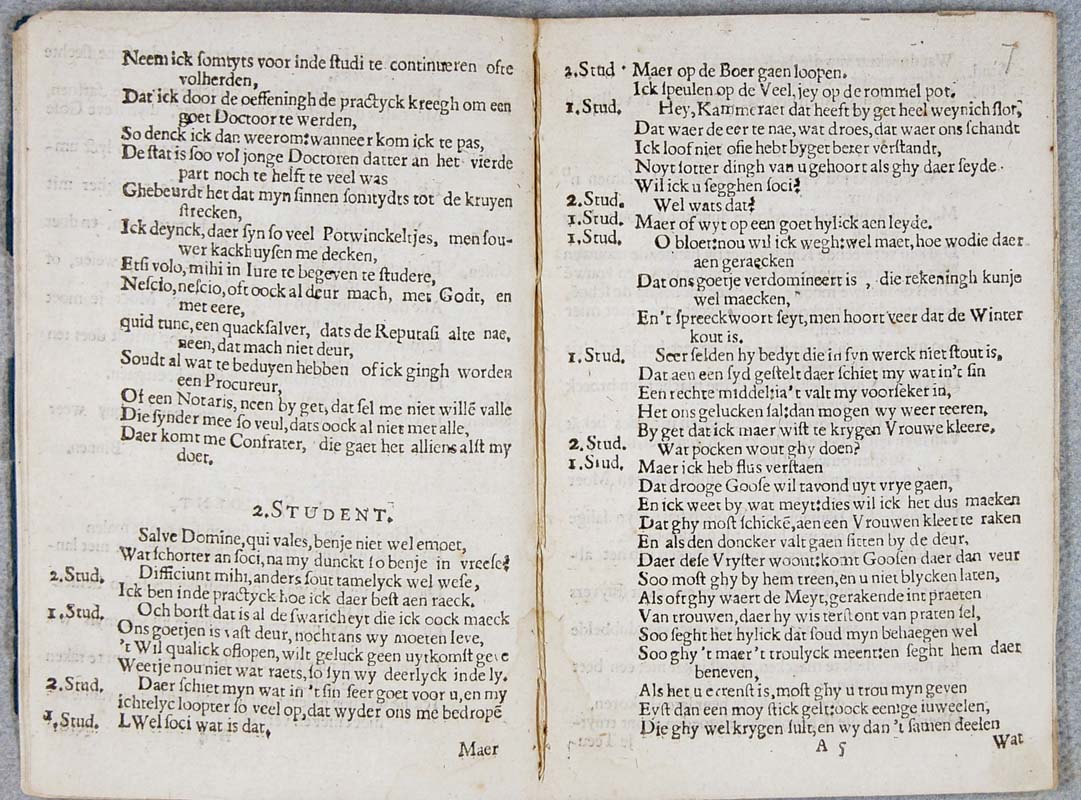 Neem ick ſomtyts voor inde ſtudi te continueren ofte
volherden,
Dat ick door de oeffeningh de practyck kreegh om een
goet Doctoor te werden,
So denck ick dan weerom: wanneer kom ick te pas,
De ſtat is ſoo vol jonge Doctoren datter an het vierde
part noch te helft te veel was
Ghebeurdt het dat myn ſinnen ſomtydts tot de kruyen
ſtrecken,
Ick deynck, daer ſyn ſo veel Potwinckeltjes, men ſou-
wer kackhuyſen me decken,
Etſi volo, mihi in Iure te begeven te ſtudere,
Neſcio, neſcio, oft oock al deur mach, met Godt, en
met eere,
quid tunc, een quackſalver, dats de Reputaſi alte nae,
neen, dat mach niet deur,
Soudt al wat te beduyen hebben of ick gingh worden
een Procureur,
Of een Notaris, neen by get, dat ſel me niet willē valle
Die ſynder mee ſo veul, dats oock al niet met alle,
Daer komt me Confrater, die gaet het alliens alſt my
doet.
2. STUDENT.
Salve Domine, qui vales, benje niet wel emoet,
Wat ſchorter an ſoci, na my dunckt ſo benje in vreeſe?
2. Stud. Difficiunt mihi, anders ſout tamelyck wel weſe,
Ick ben inde practyck hoe ick daer beſt aen raeck.
1. Stud. Och borſt dat is al de ſwaricheyt die ick oock maeck
Ons goetjen is vaſt deur, nochtans wy moeten leve,
't Wil qualick oflopen, wilt geluck geen uytkomſt geve
Weetje nou niet wat raets, ſo ſyn wy deerlyck inde ly.
2. Stud. Daer ſchiet myn wat in 't ſin ſeer goet voor u, en my
ichtelyc loopter ſo veel op, dat wyder ons mē bedropē
1. Stud. LWel ſoci wat is dat,
Maer
7
2. Stud Maer op de Boer gaen loopen.
Ick ſpeulen op de Veel, jey op de rommel pot.
1. Stud. Hey, Kammeraet dat heeft by get heel weynich ſlot,
Dat waer de eer te nae, wat droes, dat waer ons ſchandt
Ick loof niet ofie hebt byget beter verſtandt,
Noyt ſotter dingh van u gehoort als ghy daer ſeyde.
Wil ick u ſegghen ſoci?
2. Stud. Wel wats dat?
1. Stud. Maer of wyt op een goet hylick aen leyde.
1. Stud. O bloet: nou wil ick wegh: wel maet, hoe wodie daer
aen geraecken
Dat ons goetje verdomineert is, die rekeningh kunje
wel maecken,
En't ſpreeckwoort ſeyt, men hoort veer dat de Winter
kout is.
1. Stud. Seer ſelden hy bedyt die in ſyn werck niet ſtout is,
Dat aen een ſyd geſtelt daer ſchiet my wat in't ſin
Een rechte middel: ia't valt my voorſeker in,
Het ons gelucken ſal: dan mogen wy weer teeren,
By get dat ick maer wiſt te krygen Vrouwe kleere,
2. Stud. Wat pocken wout ghy doen?
1. Stud. Maer ick heb flus verſtaen
Dat drooge Gooſe wil tavond uyt vrye gaen,
En ick weet by wat meyt: dies wil ick het dus maeken
Dat ghy moſt ſchickē, aen een Vrouwen kleet te raken
En als den doncker valt gaen ſitten by de deur,
Daer deſe Vryſter woont: komt Gooſen daer dan veur
Soo moſt ghy by hem treen, ēn u niet blycken laten,
Als oft ghy waert de Meyt, gerakende int praeten
Van trouwen, daer hy wis terſtont van praten ſel,
Soo ſeght het hylick dat ſoud myn behaegen wel
Soo ghy 't maer 't troulyck meent: en ſeght hem daer
beneven,
Als het u eerenſt is, moſt ghy u trou myn geven
Evſt dan een moy ſtick gelt: oock eenige iuweelen,
Die ghy wel krygen ſult, en wy dan 't ſamen deelen
A 5
Wat